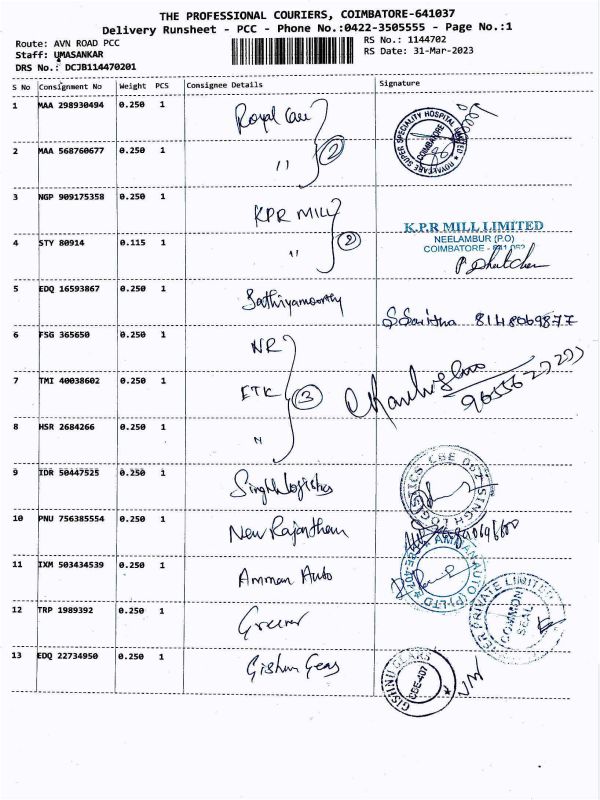 THE PROFESSIONAL COURIERS, COIMBATORE-641037
Delivery Runsheet - PCC - Phone No.:0422-3505555 - Page No.:1
Route: AVN ROAD PCC
RS No.: 1144702
Staff: UMASANKAR
RS Date: 31-Mar-2023
DRS No.: DCJB114470201
S No Consignment No Weight PCS Consignee Details Signature
1 MAA 298930494 0.250 1 Royal Care
ROYALCARE SUPER SPECIALITY HOSPITAL LIMITED
COIMBATORE
2 MAA 568760677 0.250 1 " 2
3 NGP 909175358 0.250 1 KPR MILL
K.P.R MILL LIMITED
NEELAMBUR (P.O)
COIMBATORE - 641 062
4 STY 80914 0.115 1 " 2
5 EDQ 16593867 0.250 1 Sathiyamoorthy 8148069877
6 FSG 365650 0.250 1 NR
7 TMI 40038602 0.250 1 ETK 3
8 HSR 2684266 0.250 1 "
9 IDR 50447525 0.250 1 Singh Logistics
SINGH LOGISTICS CBE
10 PNU 756385554 0.250 1 New Rajasthan
11 IXM 503434539 0.250 1 Amman Auto
AMMAN AUTO (P) LTD
12 TRP 1989392 0.250 1
PRIVATE LIMITED
COMMON SEAL
13 EDQ 22734950 0.250 1 Gishnu Gears
GISHNU GEARS
CBE-407